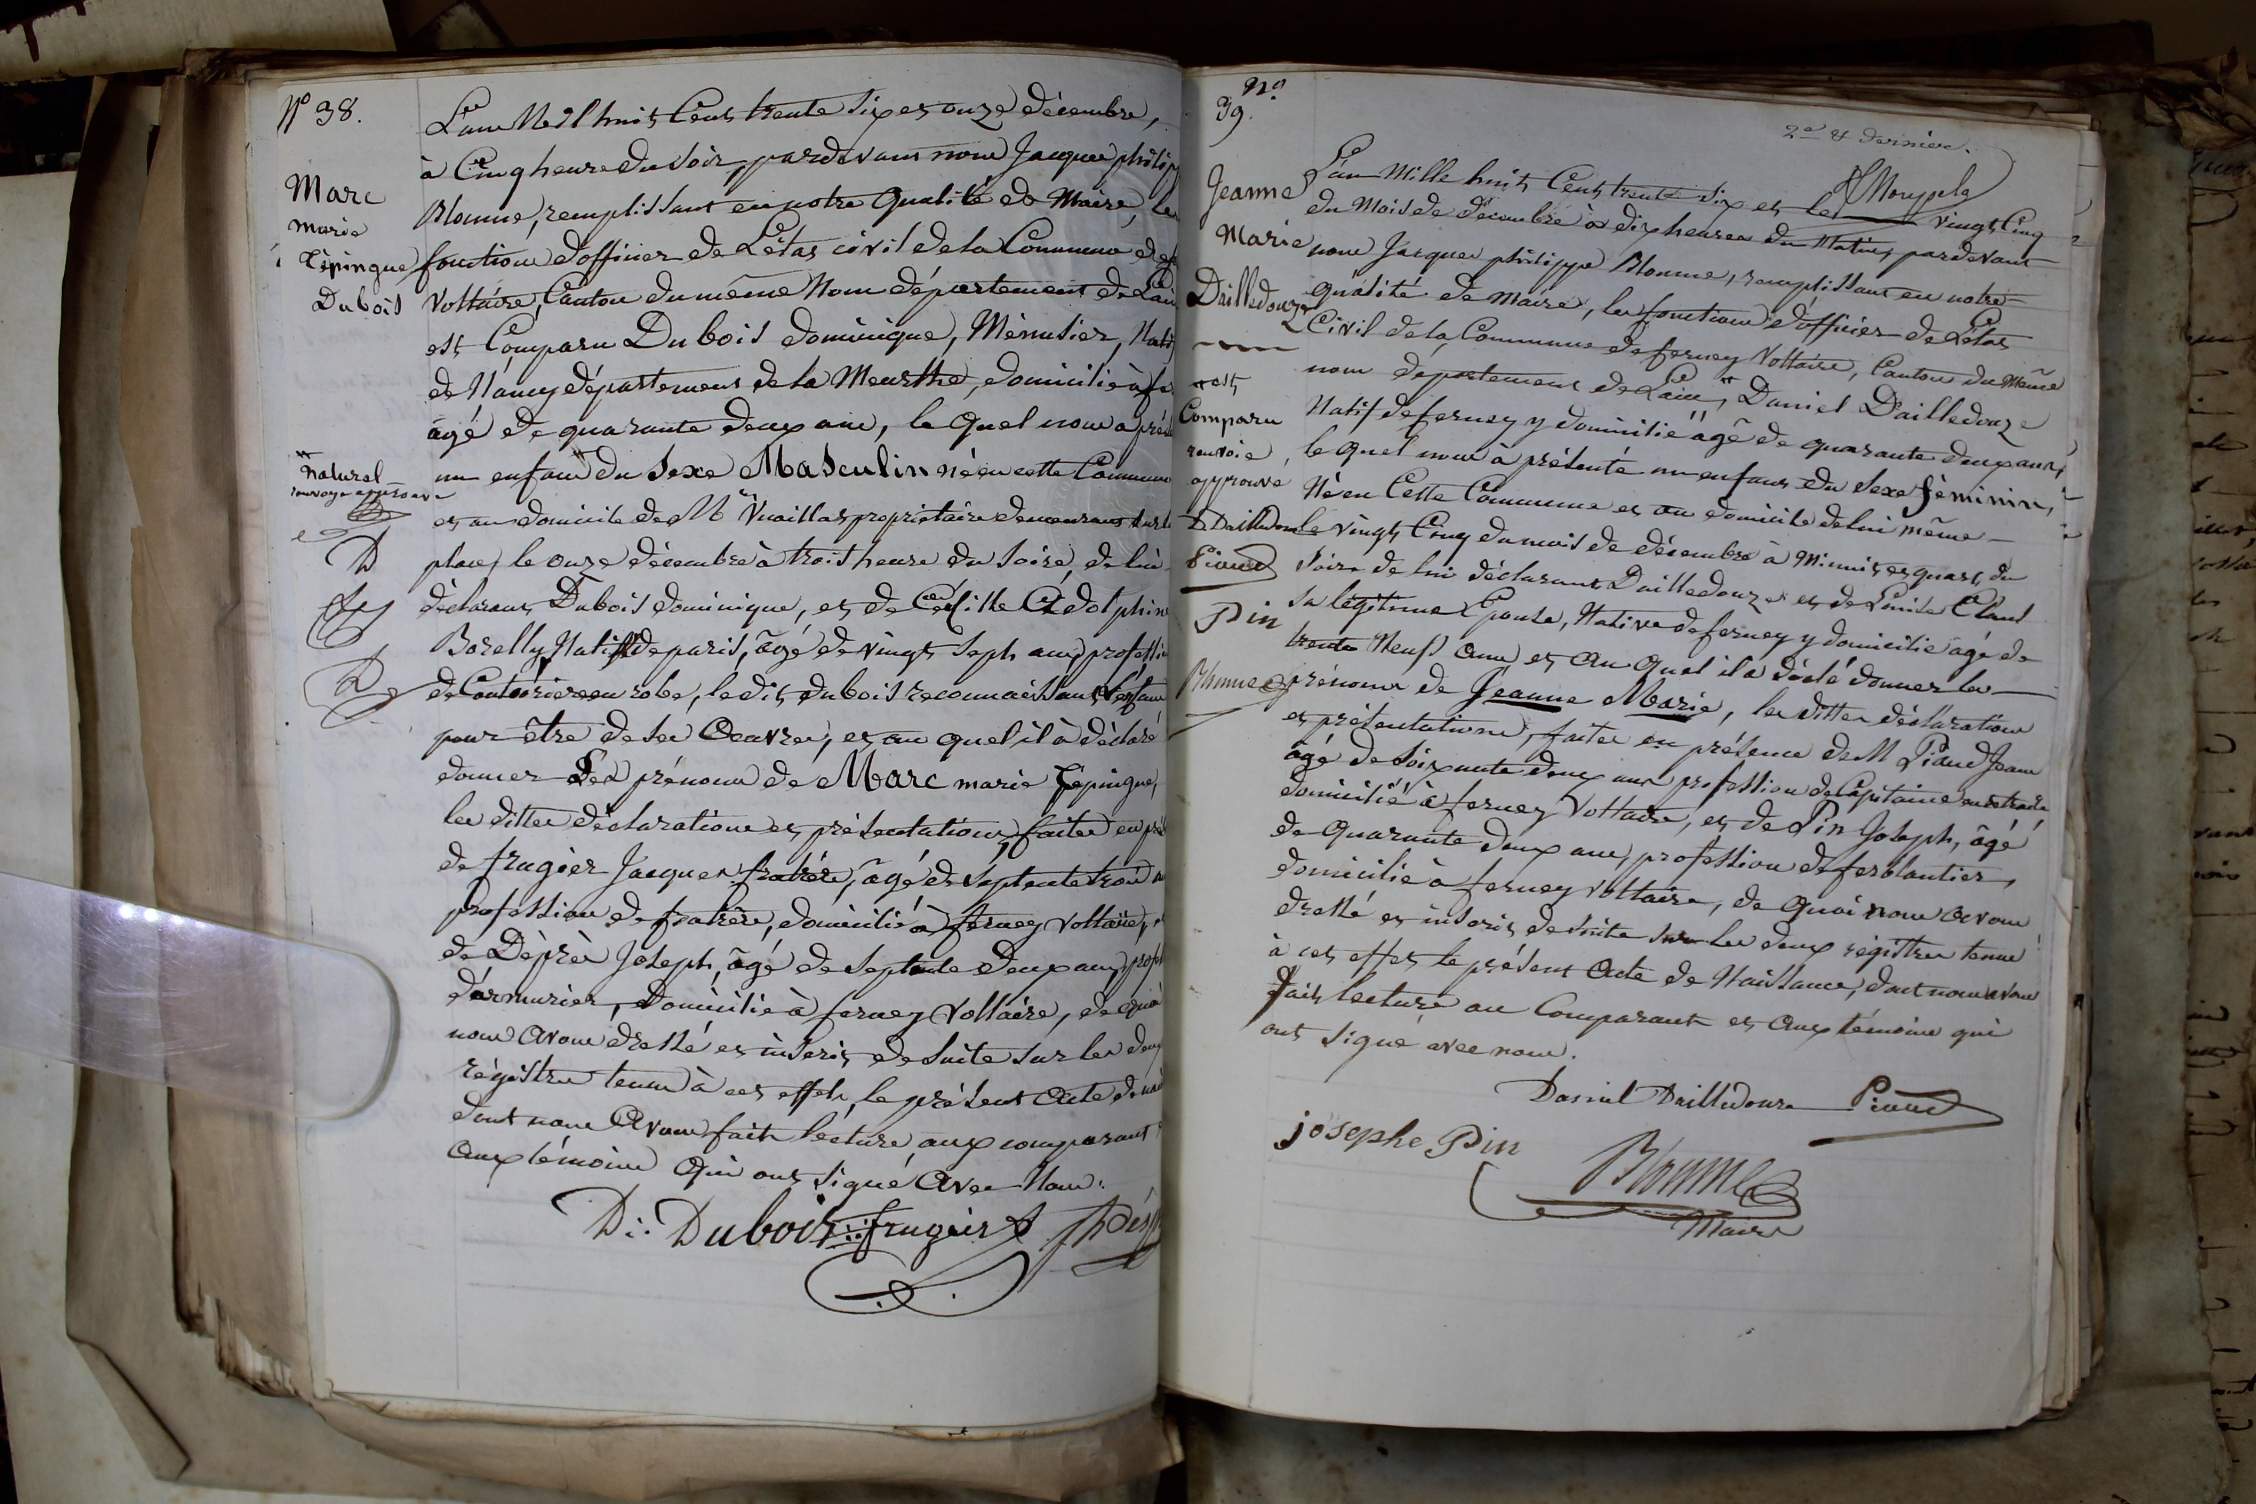 Nº 38.
Marc
marie
Dubois
naturel
L'an Mil huit Cent trente six et onze décembre,
à Cinq heure du soir, pardevant nous Jacque philip
Blonme, remplissant en notre Qualité de Maire, les
fonction d'officier de L'état civil de la Commune de
Voltaire, Canton du même Nom département de L'ain
est Comparu Dubois dominique, Ménusier, Natif
de Nancy département de la Meurthe, domicilié à
âgé de quarante deux ans, le quel nous a
un enfant du sexe Masculin né en cette Commune
et au domicile de Mr Vuaillat propriétaire demeurant sur la
place, le onze décembre à trois heure du soire, de lui
déclarant, Dubois dominique, et de
Borelly Natif de paris, âgé de vingt seph ans, profession
de Couturière en robe, le dit dubois reconnaissant l'enfant
pour être de ses Oeuvres, et au quel il à déclaré
donner Les prénoms de Marc marie
les dittes déclarations et présentations, faites en
de frugier Jacques fratère, âgé de septente trois
profession de fratère, domicilié à ferney Voltaire,
de Dèprèr Joseph, âgé de septente deux ans, prof
d'armurier, Domicilié à ferney Voltaire, de quoi
nous avons dressé et inscrit de suite sur les deux
régistre tenus à cet effeh, le présent acte de
dont nous Avons fait lecture, aux comparant
aux témoins Qui ont signé Avec Nous.
D. Dubois frugier
no
39.
2e et dernier.
Jeanne
Marie
Dailledouze
est
Comparu
renvoie
approuvé
D Dailledouze
Pin
Blonme
L'an Mille huit Cent trente six et le vingt Cinq
du Mois de décembre à dix heures du Matin, pardevant
nous Jacque philippe Blonme, remplissant en notre
Qualité de Maire, les fonctions d'officier de L'état
Civil de la Commune de ferney Voltaire, Canton du Même
nom département de L'ain, Daniel Dailledouze
Natif de ferney y domicilié âgé de quarante deux ans,
le quel nous à présenté un enfant du sexe féminin,
Né en Cette Commune et au domicile de lui même
le vingt Cinq du mois de décembre à Minuit et quart, du
soire de lui déclarant Dailledouze et de Louise
sa légitime Epouse, Native de ferney y domicilié âgé de
trente Neuf ans et au Quel il a déclé donner les
prénoms de Jeanne Marie, les dittes déclarations
et présentations, faites en présence de M Jean
âgé de soixante deux ans profession de Capitaine en retraite
domicilié à ferney Voltaire, et de Pin Joseph, âgé
de Quarante deux ans, profession de ferblantier,
domicilié à ferney Voltaire, de Quoi nous avons
dressé et inscrit de suite sur les deux régistre tenus
à cet effet le présent Acte de Naissance, dont nous avons
fait lecture au Comparant et aux témoins qui
ont signé avec nous.
Daniel Dailledouze
josephe Pin
Blonme
Maire